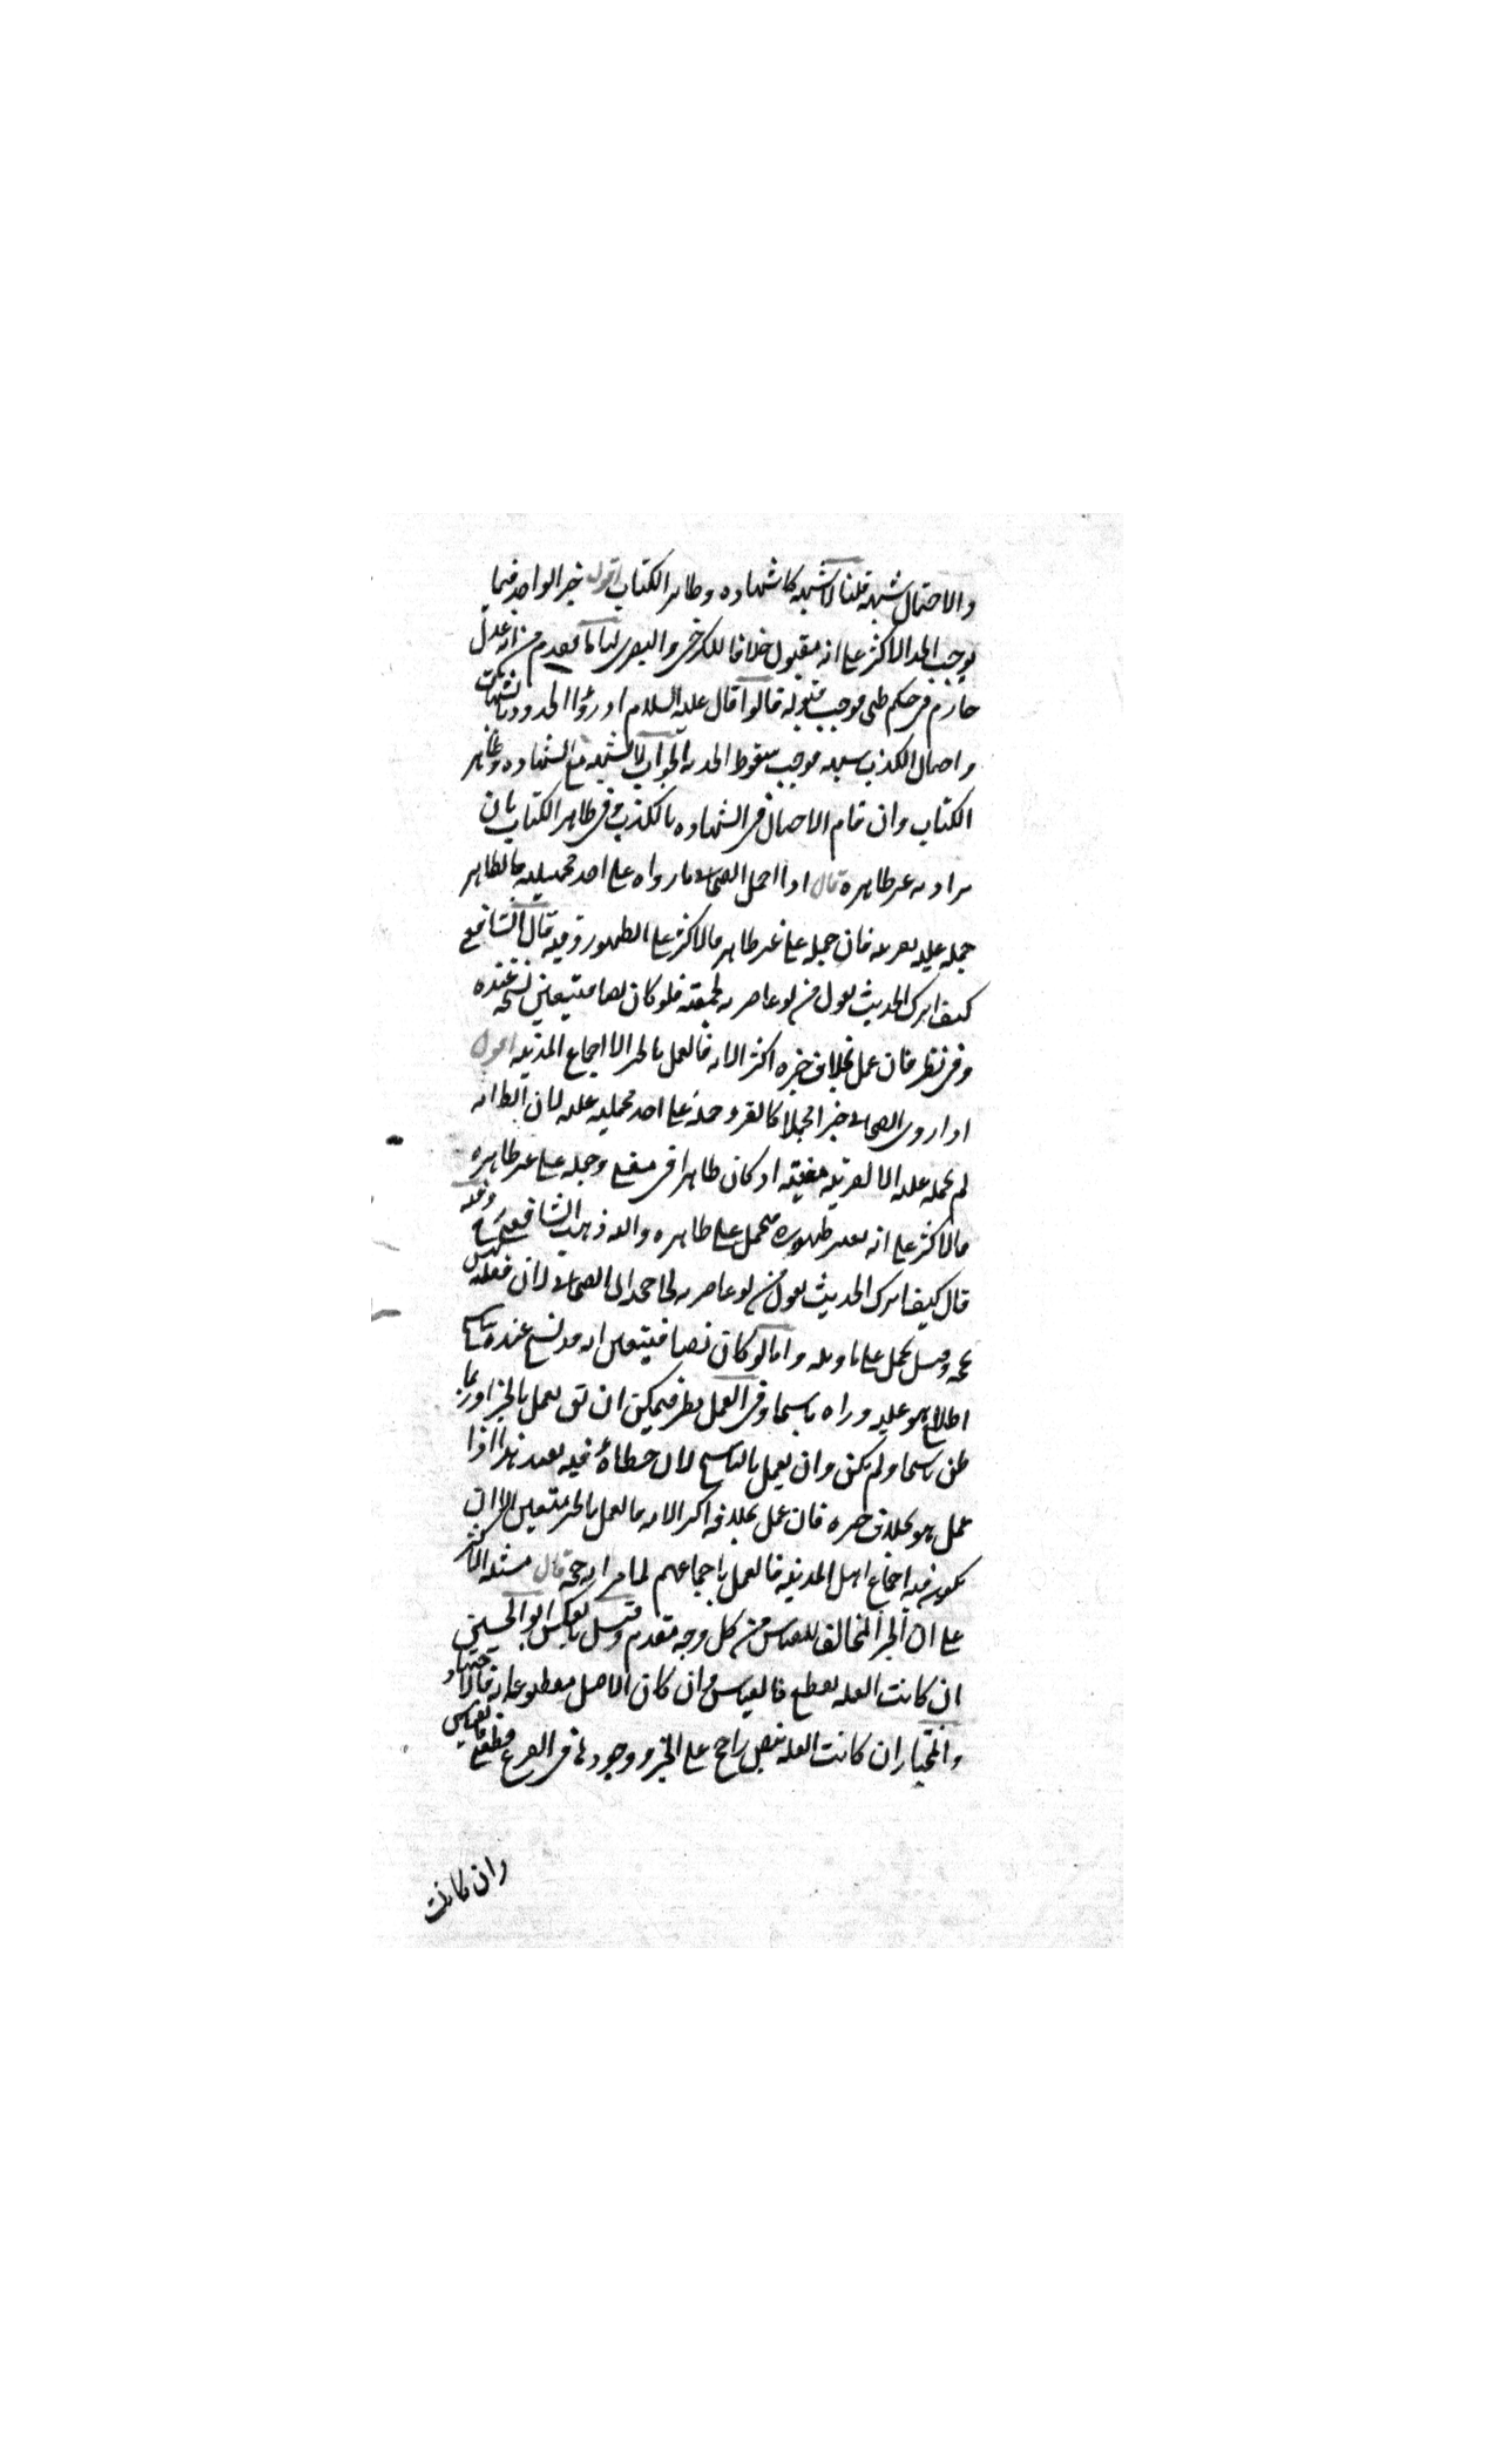 والاحتمال شبهة قلنا لا شبهة كالشهادة وظاهر الكتاب اقول خبر الواحد فيما
يوجب الحد الاكثر على انه مقبول خلافا للكرخي والبصري لنا ما تقدم من انه عدل
جازم في حكم ظني فوجب قبوله قالوا قال عليه السلام ادرؤا الحدود بالشبهات
واحتمال الكذب شبهة فوجب سقوط الحد به الجواب لا شبهة مع الشهادة وظاهر
الكتاب وان قام الاحتمال في الشهادة بالكذب وفي ظاهر الكتاب بان
يراد به غير ظاهره قال اذا حمل الصحابي ما رواه على احد محمليه فالظاهر
حمله عليه بقرينة فان حمله على غير ظاهر فالاكثر على الظهور وفيه قال الشافعي
كيف اترك الحديث بقول من لو عاصرته لحججته فلو كان نصا فيتعين نسخه عنده
وفي نظر فان عمل بخلاف خبره اكثر الامة فالعمل بالخبر الا اجماع المدينة اقول
اذا روى الصحابي خبرا مجملا كالقرء وحمله على احد محمليه حمل عليه لان الظاهر انه
لم يحمله عليه الا لقرينة معينة او كان ظاهرا في معنى وحمله على غير ظاهره
فالاكثر على انه يعتبر ظهوره فيحمل على ظاهره واليه ذهب الشافعي رح وفيه
قال كيف اترك الحديث بقول من لو عاصرته لحاججته اي الصحابي لان فعله ليس
بحجة وقيل يحمل على تاويله واما لو كان نصا فيتعين انه قد نسخ عنده بناسخ
اطلع هو عليه وراه ناسخا وفي العمل نظر فيمكن ان يق يعمل بالخبر اذ ربما
ظن ناسخا ولم يكن وان يعمل بالناسخ لان خطاءه فيه بعيد هذا اذا
عمل هو بخلاف خبره فان عمل بخلافه اكثر الامة فالعمل بالخبر متعين الا ان
يكون فيه اجماع اهل المدينة فالعمل باجماعهم لما مر انه حجة قال مسئلة الاكثر
على ان الخبر المخالف للقياس من كل وجه مقدم وقيل بالعكس ابو الحسين
ان كانت العلة بقطعي فالقياس وان كان الاصل مقطوعا به فالاجتهاد
والمختار ان كانت العلة بنص راجح على الخبر ووجودها في الفرع قطعي فالقياس
وان كانت